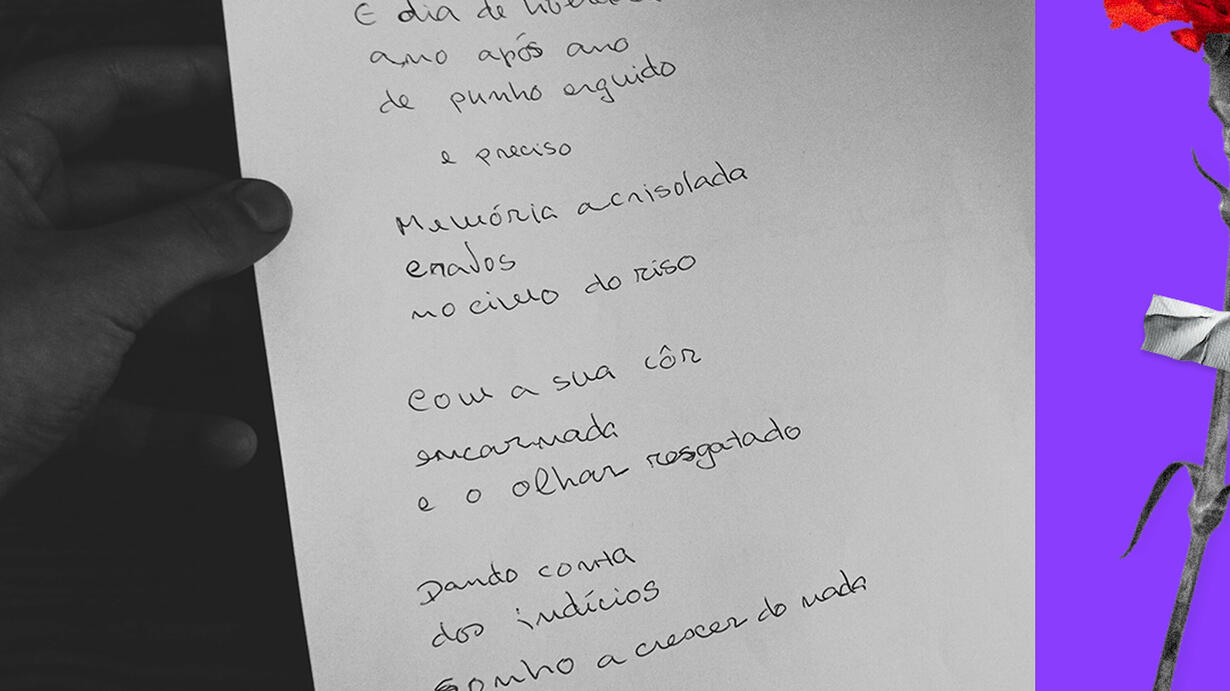 É dia de
ano após ano
de punho erguido
e preciso
Memória acrisolada
cravos
no cimo do riso
Com a sua côr
encarnada
e o olhar resgatado
Dando conta
dos indícios
Sonho a crescer do nada